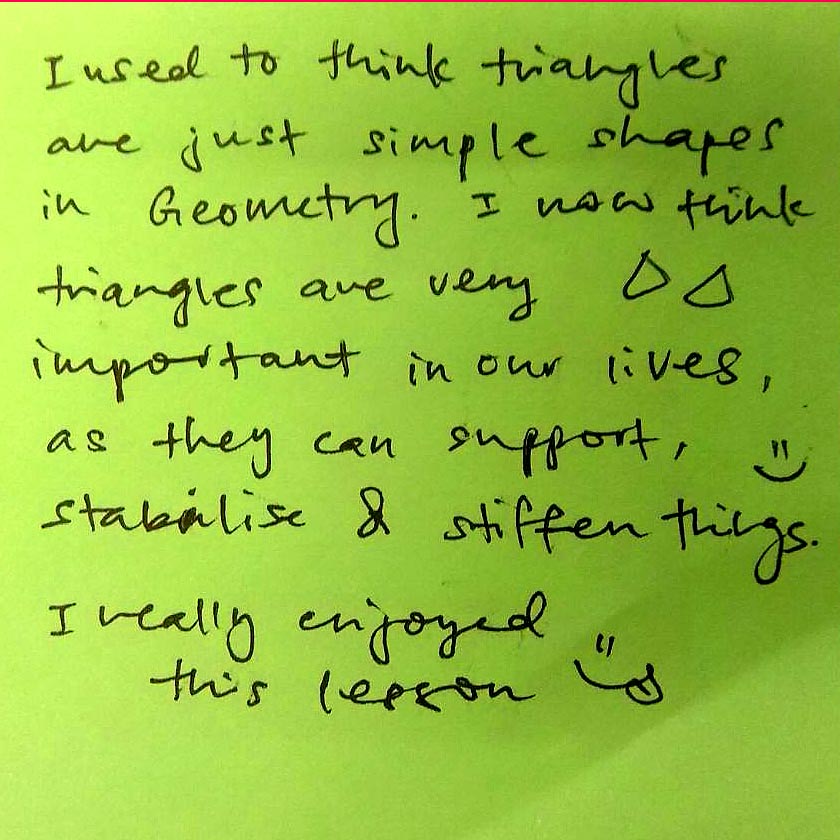 I used to think triangles
are just simple shapes
in Geometry. I now think
triangles are very
important in our lives,
as they can support,
stabilise & stiffen things.
I really enjoyed
this lesson